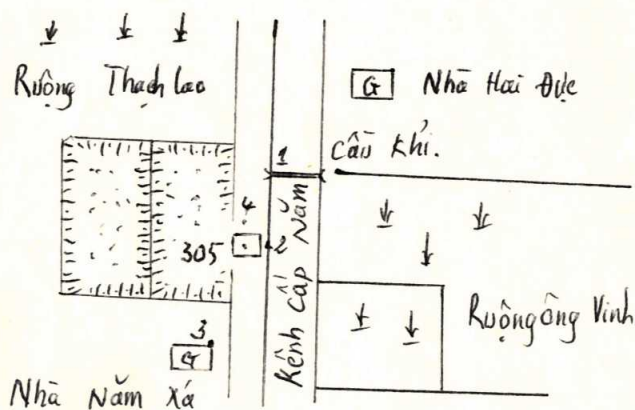 Ruộng Thạch lao
G Nhà Hai Đực
1 Cầu Khỉ.
4
305
2
Kênh Cấp Năm
Ruộng ông Vinh
3
G
Nhà Năm Xá